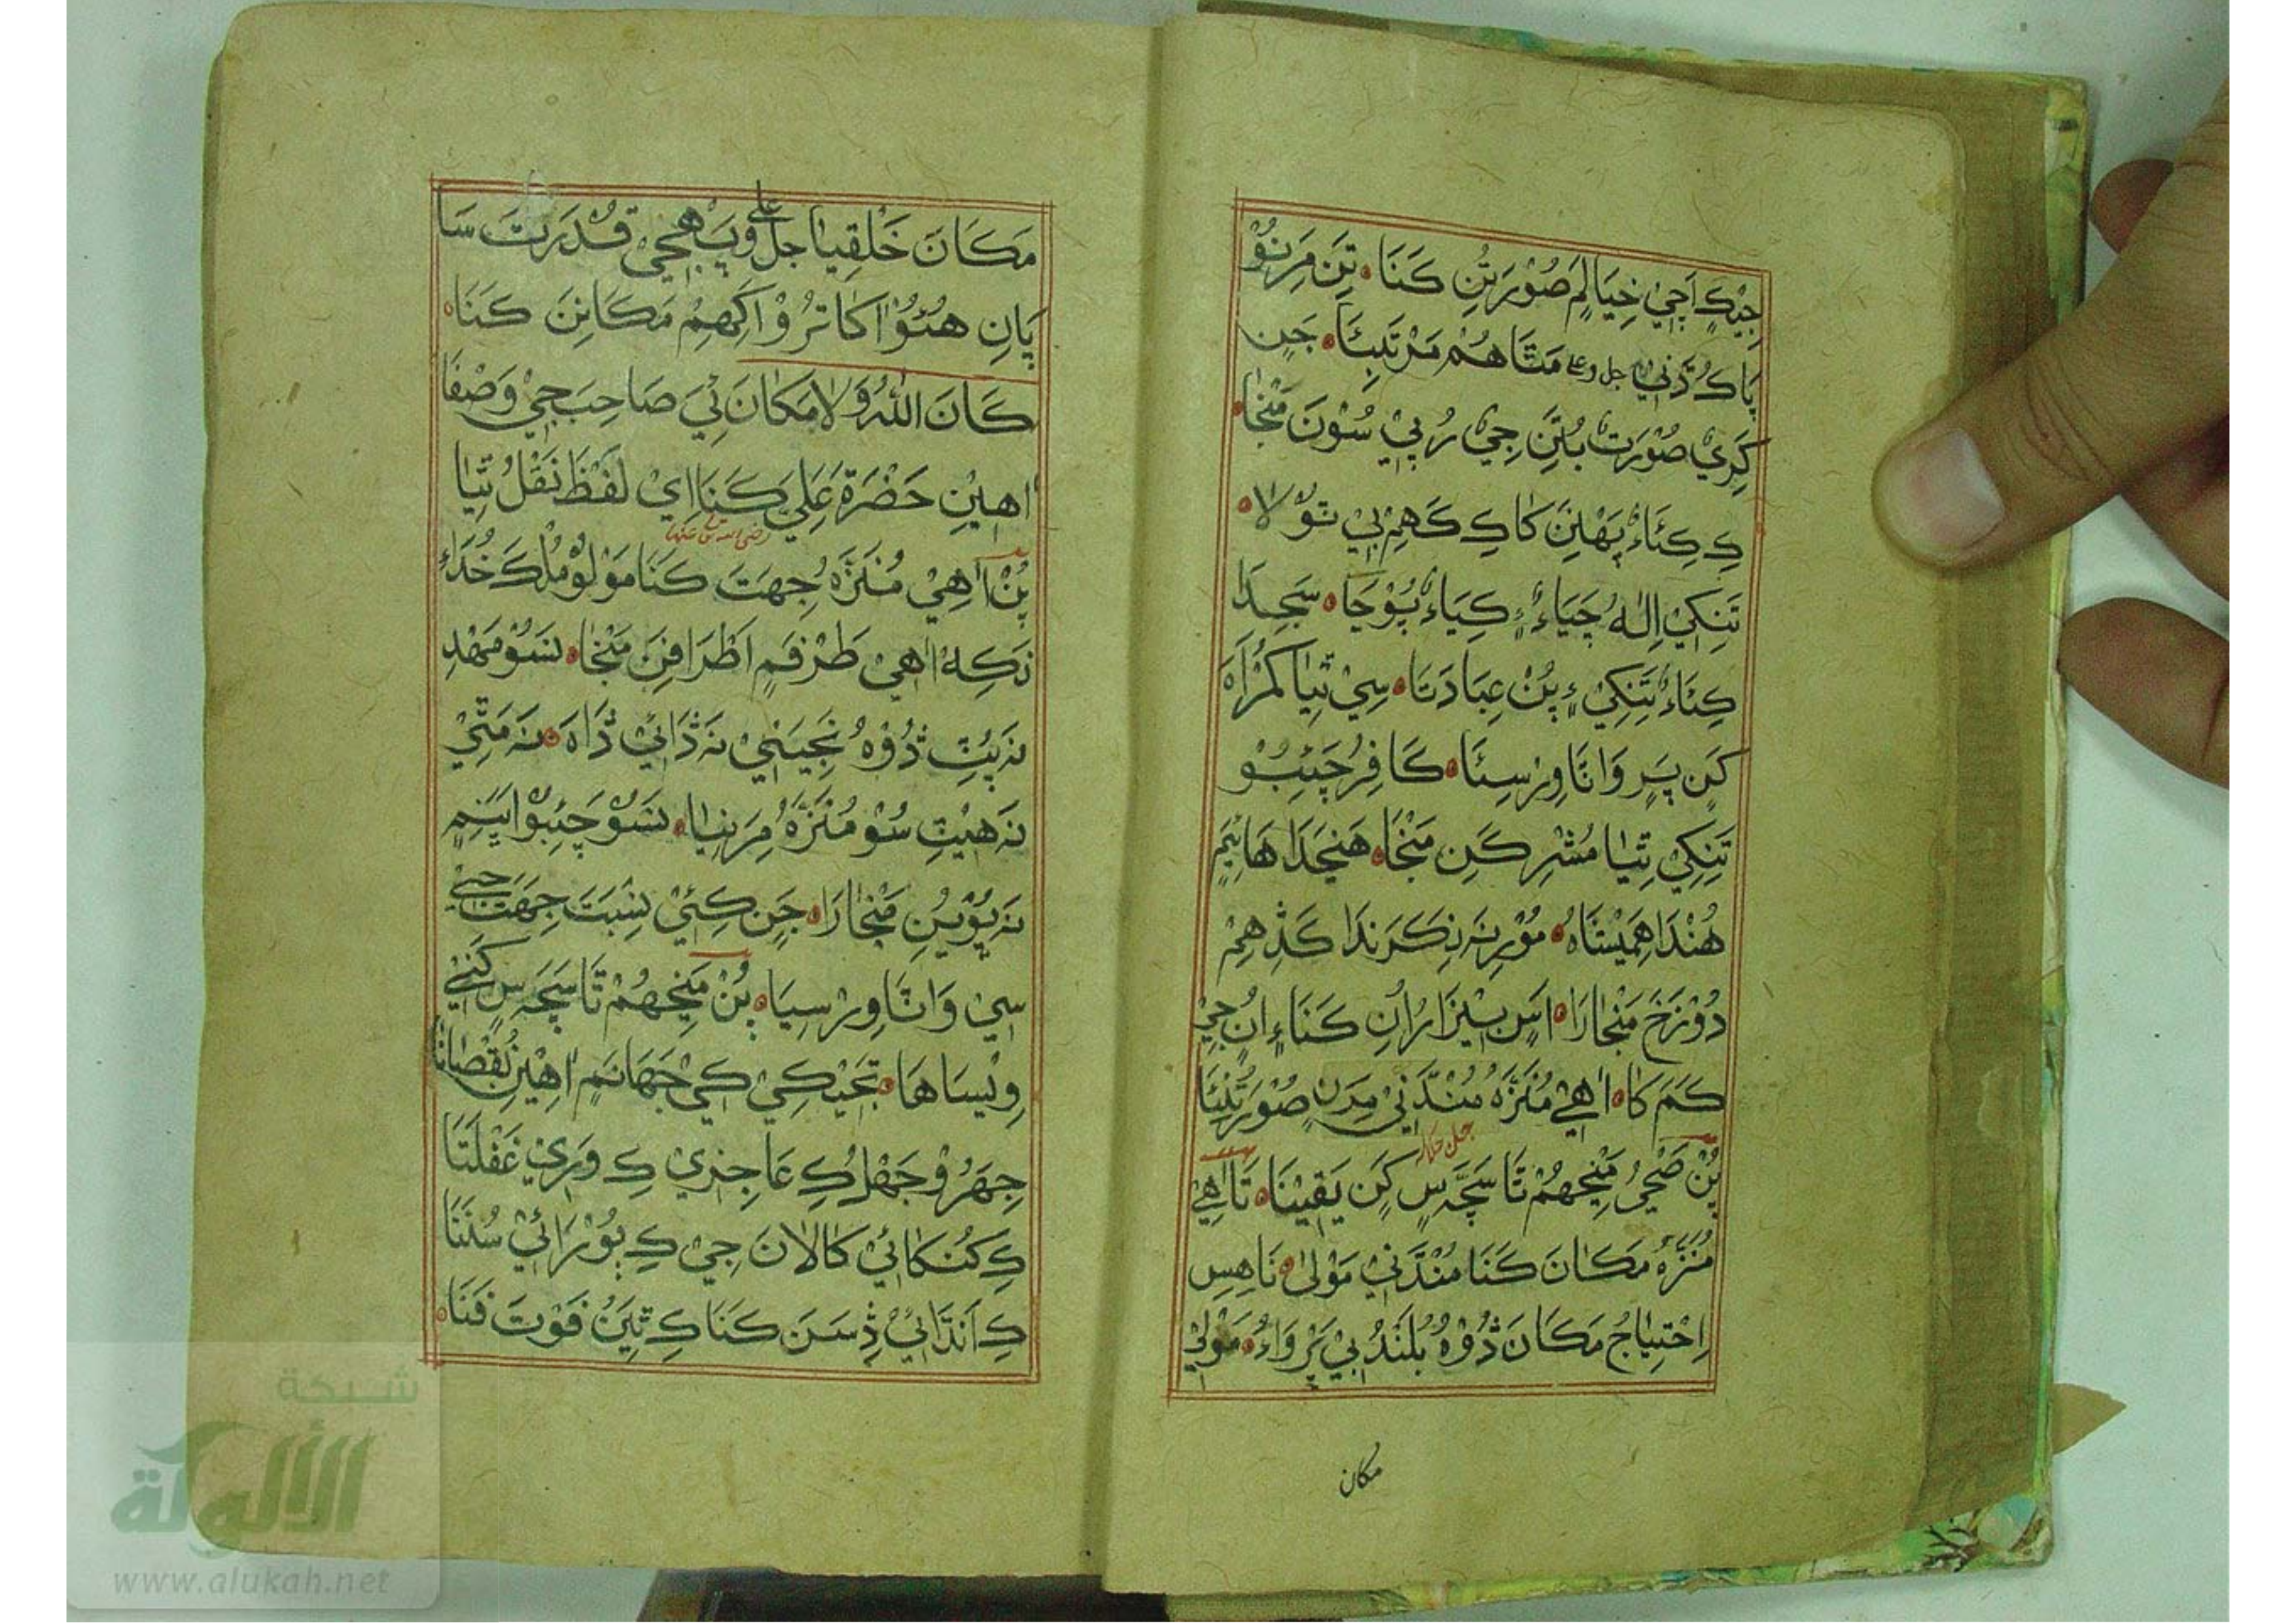 جِيْڪِ اَچِيْ خِيَالِمِ صُوْرَتُنِ ڪَنَا ۰ تِنِ مِرِنِئُوْ
پَاڪُ ڌَنِيْ جل وعلا مَٿَا هُمْ مَرْتَبِئَا ۰ جَنِ
ڪَرِيْ صُوْرَتْ بُتَنِ جِيْ رُبِيْ سُوْنَ مَنْجَا ۰
ڪِ ڪِئَاءُ پَهْنِنَ کَاڪِ ڪَهِمْ بِيْ تُولَا ۰
تَنِکِيْ اِلٰهُ چَيَاءُ ڪِيَاءُ پُوْجَا ۰ سَجِدَا
ڪِئَاءُ تَنِکِيْ ءٍ پُنْ عِبَادَتَا ۰ سِيْ ٿِيَا گُمْرَاہ
ڪَنِ پَرِ وَانَا وِرْسِئَا ۰ ڪَافِرُ چَئِبُوْ
تَنِکِيْ ٿِيَا مُشْرِڪَنِ مَنْجَا ۰ هَنِجَدَا هَائِمِ
هُنْدَا هَمِيْشَاہُ ۰ مُوْرِ نَہ نِڪَرَنْدَا ڪَڏِهِمْ
دُوْزَخَ مَنْجَارَا ۰ اَسِ بِيْزَارُ اُنِ ڪَنَاءٍ اُنِ جِيْ
ڪَمَ کَا ۰ اٰهِيْ مُنَزَّہُ مُنْدَنِيْ مِدَنِ صُوْرَتُنِئَا
پُنْ صَحِيْ مَنِجَهُمْ تَا سَچَہ سِ ڪَنِ يَقِيْنَا ۰ تَا اٰهِيْ
جل جلاله
مُنَزَّہُ مَڪَانَ ڪَنَا مُنْدَنِيْ مَوْلٰى ۰ نَاهِسِ
اِحْتِيَاجُ مَڪَانَ ڌُوْہُ بُلَنْدُ بِيْ پَرْوَاءُ ۰ مَوْلٰى
مکان
مَڪَانَ خَلْقِيَا جل وعلی وِيَہْ هِجِيْ قُدْرَتَ سَا
پَانِ هُئُوْ اَڪَاتَرُوْ اَڪِهِمْ مَڪَانِنَ ڪَنَا ۰
ڪَانَ اللّٰهُ وَلَا مَكَانَ ئِيَ صَاحِبَ جِيْ وَصْفَا
اٰهِيْنِ حَضْرَة عَلِيَ ڪَنَا اِيْ لَفْظَ نَقْلُ ٿِيَا
رضی الله تعالی عنها
پُنْ اٰهِيْ مُنَزَّہُ جِهَتَ ڪَنَا مَوْلُوْ مُلْڪَ خُدَاءِ
نَڪِهْ اٰهِيْ طَرْفَمِ اَطْرَافِنَ مَنْجَا ۰ نَسُوْ مَهْدِ
نَہ پُٺِ ڌُوْہُ نَجِيْنِيْ نَہ ڌَائِيْ ڌَاہ ۰ نَہ مَٿِيْ
نَہ هِيْٺِ سُوْ مُنَزَّہُ مِرَنِيَا ۰ نَسُوْ چَئِبُوْ اَيَنِمِ
نَہ پُوْيِنِ مَنْجَارَا ۰ جَنِ ڪِئِيْ نِسْبَتَ جِهَتَ جِيْ
سِيْ وَانَا وِرْسِيَا ۰ پُنْ مَنِجَهُمْ تَا سَچَہ سِ ڪَنِيْ
وِيْسَاهَا ۰ تَجِيْڪِيْ ڪِيْ جَهَانَمِ اٰهِيْنِ نُقْصَانَا
جِهَرُوْ جَهْلُ ڪِ عَاجِزِيْ ڪِ وَرِيْ غَفْلَتَا
ڪِ ڪُنڪَائِيْ ڪَالَانَ جِيْ ڪِ بُوْرَائِيْ سُنَنَا
ڪِ اَنڌَائِيْ ڏِسَنَ ڪَنَا ڪِ ٿِيَنُ فَوْتَ فَنَا ۰
شبكة
الألوكة
www.alukah.net